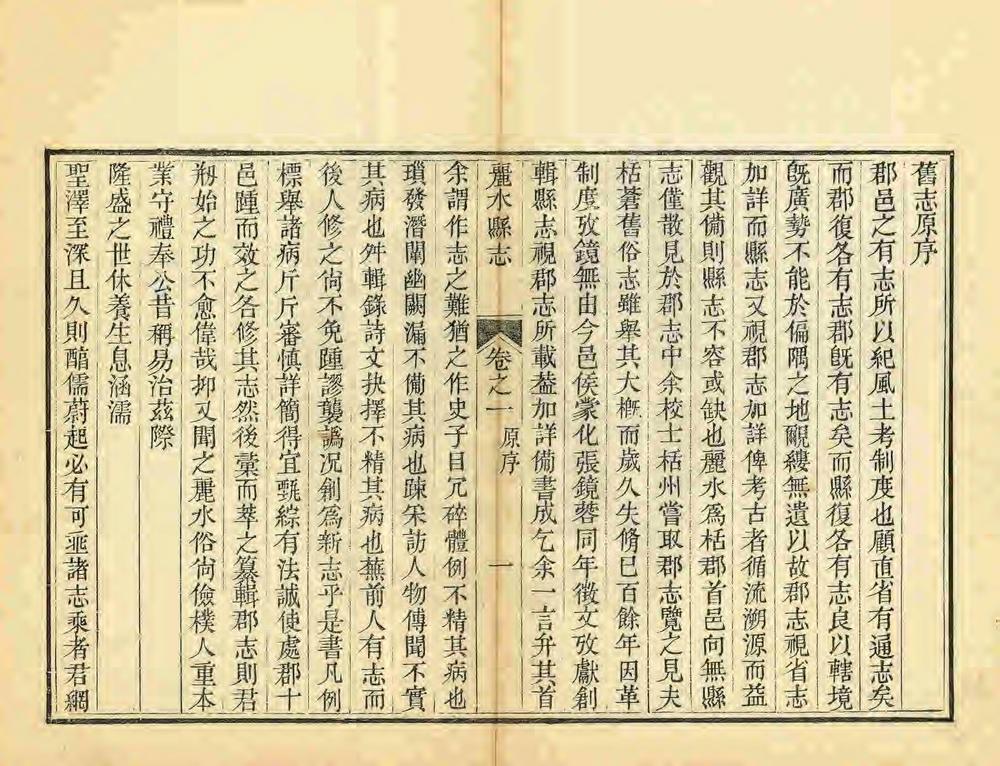 舊志原序
郡邑之有志所以紀風土考制度也顧直省有通志矣
而郡復各有志郡旣有志矣而縣復各有志良以轄境
旣廣勢不能於偏隅之地覼縷無遺以故郡志視省志
加詳而縣志又視郡志加詳俾考古者循流溯源而益
觀其備則縣志不容或缺也麗水爲栝郡首邑向無縣
志僅散見於郡志中余校士栝州嘗取郡志覽之見夫
栝蒼舊俗志雖舉其大槪而歲久失脩已百餘年因革
制度攷鏡無由今邑侯蒙化張鏡蓉同年徵文攷獻創
輯縣志視郡志所載葢加詳備書成乞余一言弁其首
麗水縣志
卷之一
原序
一
余謂作志之難猶之作史子目冗碎體例不精其病也
瑣發潛闡幽闕漏不備其病也踈采訪人物傳聞不實
其病也舛輯錄詩文抉擇不精其病也蕪前人有志而
後人修之尙不免踵謬襲譌况創爲新志乎是書凡例
標舉諸病斤斤審慎詳簡得宜甄綜有法誠使處郡十
邑踵而效之各修其志然後彙而萃之纂輯郡志則君
剏始之功不愈偉哉抑又聞之麗水俗尙儉樸人重本
業守禮奉公昔稱易治茲際
隆盛之世休養生息涵濡
聖澤至深且久則酯儒蔚起必有可垂諸志乘者君網